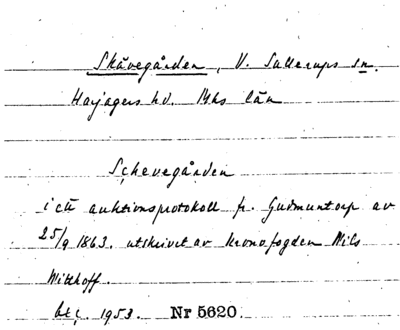 Skåvegården, V. Sallerups sn.
Harjagers hd. Mhs län
Schevegården
i ett auktionsprotokoll fr. Gudmuntorp av
25/9 1863, utskrivet av kronofogden Nils
Witthoff.
1953. Nr 5620.